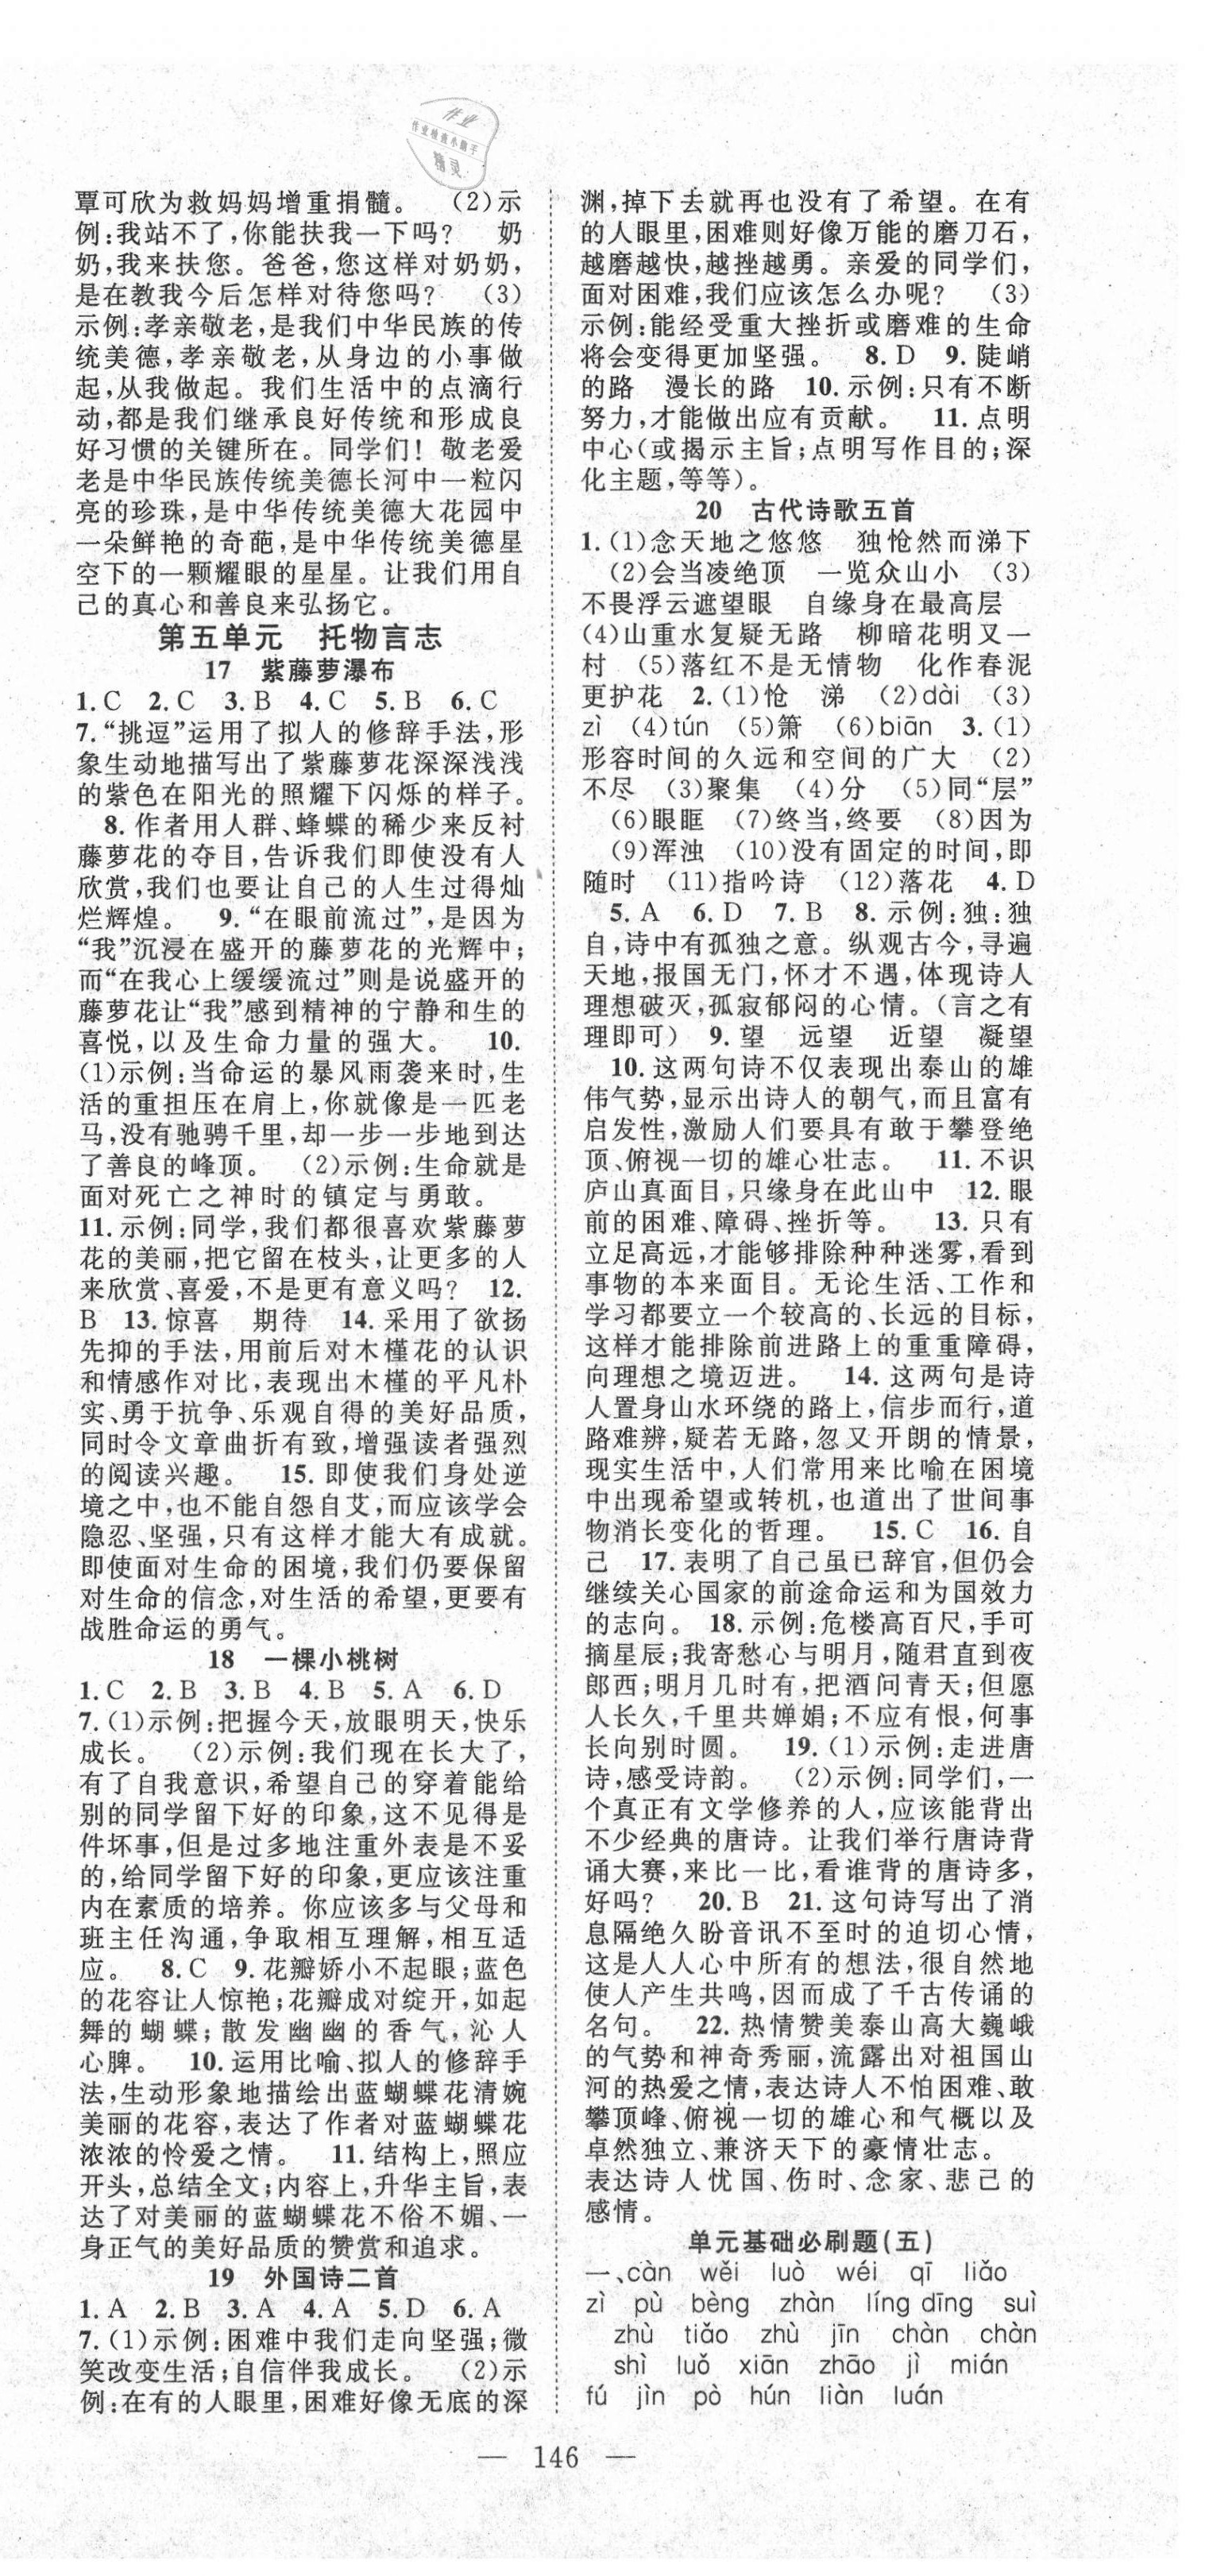 作业
作业检查小助手
精灵
覃可欣为救妈妈增重捐髓。 (2)示
例:我站不了,你能扶我一下吗? 奶
奶,我来扶您。爸爸,您这样对奶奶,
是在教我今后怎样对待您吗? (3)
示例:孝亲敬老,是我们中华民族的传
统美德,孝亲敬老,从身边的小事做
起,从我做起。我们生活中的点滴行
动,都是我们继承良好传统和形成良
好习惯的关键所在。同学们!敬老爱
老是中华民族传统美德长河中一粒闪
亮的珍珠,是中华传统美德大花园中
一朵鲜艳的奇葩,是中华传统美德星
空下的一颗耀眼的星星。让我们用自
己的真心和善良来弘扬它。
第五单元 托物言志
17 紫藤萝瀑布
1.C 2.C 3.B 4.C 5.B 6.C
7.“挑逗”运用了拟人的修辞手法,形
象生动地描写出了紫藤萝花深深浅浅
的紫色在阳光的照耀下闪烁的样子。
8.作者用人群、蜂蝶的稀少来反衬
藤萝花的夺目,告诉我们即使没有人
欣赏,我们也要让自己的人生过得灿
烂辉煌。 9.“在眼前流过”,是因为
“我”沉浸在盛开的藤萝花的光辉中;
而“在我心上缓缓流过”则是说盛开的
藤萝花让“我”感到精神的宁静和生的
喜悦,以及生命力量的强大。 10.
(1)示例:当命运的暴风雨袭来时,生
活的重担压在肩上,你就像是一匹老
马,没有驰骋千里,却一步一步地到达
了善良的峰顶。 (2)示例:生命就是
面对死亡之神时的镇定与勇敢。
11.示例:同学,我们都很喜欢紫藤萝
花的美丽,把它留在枝头,让更多的人
来欣赏、喜爱,不是更有意义吗? 12.
B 13.惊喜 期待 14.采用了欲扬
先抑的手法,用前后对木槿花的认识
和情感作对比,表现出木槿的平凡朴
实、勇于抗争、乐观自得的美好品质,
同时令文章曲折有致,增强读者强烈
的阅读兴趣。 15.即使我们身处逆
境之中,也不能自怨自艾,而应该学会
隐忍、坚强,只有这样才能大有成就。
即使面对生命的困境,我们仍要保留
对生命的信念,对生活的希望,更要有
战胜命运的勇气。
18 一棵小桃树
1.C 2.B 3.B 4.B 5.A 6.D
7.(1)示例:把握今天,放眼明天,快乐
成长。 (2)示例:我们现在长大了,
有了自我意识,希望自己的穿着能给
别的同学留下好的印象,这不见得是
件坏事,但是过多地注重外表是不妥
的,给同学留下好的印象,更应该注重
内在素质的培养。你应该多与父母和
班主任沟通,争取相互理解,相互适
应。 8.C 9.花瓣娇小不起眼;蓝色
的花容让人惊艳;花瓣成对绽开,如起
舞的蝴蝶;散发幽幽的香气,沁人
心脾。 10.运用比喻、拟人的修辞手
法,生动形象地描绘出蓝蝴蝶花清婉
美丽的花容,表达了作者对蓝蝴蝶花
浓浓的怜爱之情。 11.结构上,照应
开头,总结全文;内容上,升华主旨,表
达了对美丽的蓝蝴蝶花不俗不媚、一
身正气的美好品质的赞赏和追求。
19 外国诗二首
1.A 2.B 3.A 4.A 5.D 6.A
7.(1)示例:困难中我们走向坚强;微
笑改变生活;自信伴我成长。 (2)示
例:在有的人眼里,困难好像无底的深
渊,掉下去就再也没有了希望。在有
的人眼里,困难则好像万能的磨刀石,
越磨越快,越挫越勇。亲爱的同学们,
面对困难,我们应该怎么办呢? (3)
示例:能经受重大挫折或磨难的生命
将会变得更加坚强。 8.D 9.陡峭
的路 漫长的路 10.示例:只有不断
努力,才能做出应有贡献。 11.点明
中心(或揭示主旨;点明写作目的;深
化主题,等等)。
20 古代诗歌五首
1.(1)念天地之悠悠 独怆然而涕下
(2)会当凌绝顶 一览众山小 (3)
不畏浮云遮望眼 自缘身在最高层
(4)山重水复疑无路 柳暗花明又一
村 (5)落红不是无情物 化作春泥
更护花 2.(1)怆 涕 (2)dài (3)
zì (4)tún (5)箫 (6)biān 3.(1)
形容时间的久远和空间的广大 (2)
不尽 (3)聚集 (4)分 (5)同“层”
(6)眼眶 (7)终当,终要 (8)因为
(9)浑浊 (10)没有固定的时间,即
随时 (11)指吟诗 (12)落花 4.D
5.A 6.D 7.B 8.示例:独:独
自,诗中有孤独之意。纵观古今,寻遍
天地,报国无门,怀才不遇,体现诗人
理想破灭,孤寂郁闷的心情。(言之有
理即可) 9.望 远望 近望 凝望
10.这两句诗不仅表现出泰山的雄
伟气势,显示出诗人的朝气,而且富有
启发性,激励人们要具有敢于攀登绝
顶、俯视一切的雄心壮志。 11.不识
庐山真面目,只缘身在此山中 12.眼
前的困难、障碍、挫折等。 13.只有
立足高远,才能够排除种种迷雾,看到
事物的本来面目。无论生活、工作和
学习都要立一个较高的、长远的目标,
这样才能排除前进路上的重重障碍,
向理想之境迈进。 14.这两句是诗
人置身山水环绕的路上,信步而行,道
路难辨,疑若无路,忽又开朗的情景,
现实生活中,人们常用来比喻在困境
中出现希望或转机,也道出了世间事
物消长变化的哲理。 15.C 16.自
己 17.表明了自己虽已辞官,但仍会
继续关心国家的前途命运和为国效力
的志向。 18.示例:危楼高百尺,手可
摘星辰;我寄愁心与明月,随君直到夜
郎西;明月几时有,把酒问青天;但愿
人长久,千里共婵娟;不应有恨,何事
长向别时圆。 19.(1)示例:走进唐
诗,感受诗韵。 (2)示例:同学们,一
个真正有文学修养的人,应该能背出
不少经典的唐诗。让我们举行唐诗背
诵大赛,来比一比,看谁背的唐诗多,
好吗? 20.B 21.这句诗写出了消
息隔绝久盼音讯不至时的迫切心情,
这是人人心中所有的想法,很自然地
使人产生共鸣,因而成了千古传诵的
名句。 22.热情赞美泰山高大巍峨
的气势和神奇秀丽,流露出对祖国山
河的热爱之情,表达诗人不怕困难、敢
攀顶峰、俯视一切的雄心和气概以及
卓然独立、兼济天下的豪情壮志。
表达诗人忧国、伤时、念家、悲己的
感情。
单元基础必刷题(五)
一、càn wěi luò wéi qī liǎo
zì pù bèng zhàn líng dīng suì
zhù tiǎo zhù jīn chàn chàn
shì luǒ xiān zhāo jì mián
fú jìn pò hún liàn luán
— 146 —